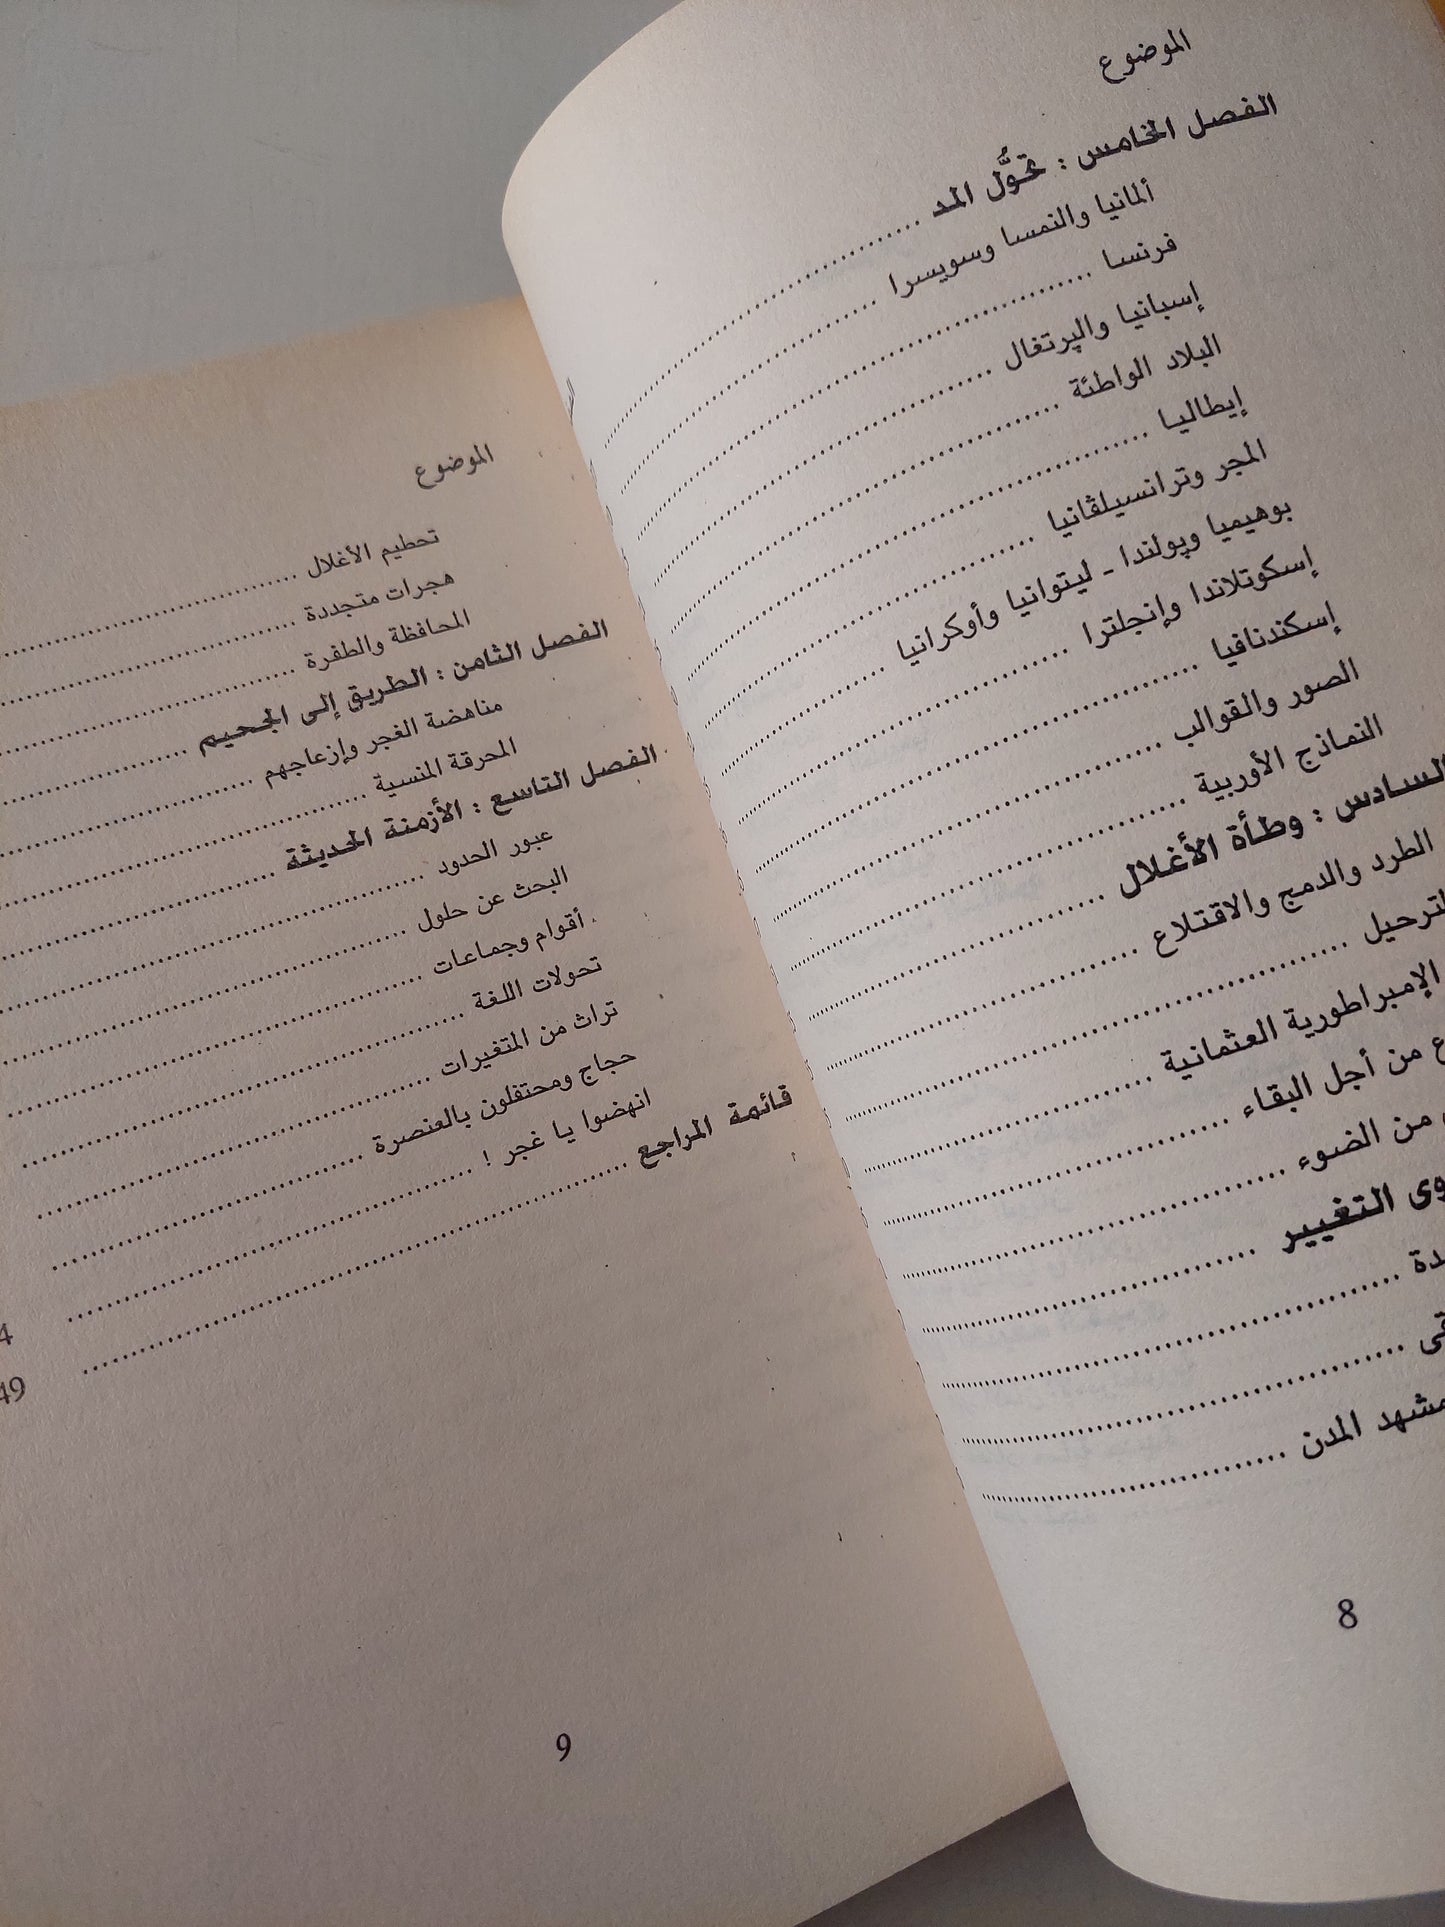 الموضوع
الفصل الخامس : تحوُّل المد
ألمانيا والنمسا وسويسرا
فرنسا
إسبانيا والپرتغال
البلاد الواطئة
إيطاليا
المجر وترانسيلڤانيا
بوهيميا وپولندا - ليتوانيا وأوكرانيا
إسكوتلاندا وإنجلترا
إسكندنافيا
الصور والقوالب
النماذج الأوربية
السادس : وطأة الأغلال
الطرد والدمج والاقتلاع
الترحيل
الإمبراطورية العثمانية
من أجل البقاء
من الضوء
التغيير
مشهد المدن
8
الموضوع
تحطيم الأغلال
هجرات متجددة
المحافظة والطفرة
الفصل الثامن : الطريق إلى الجحيم
مناهضة الغجر وإزعاجهم
المحرقة المنسية
الفصل التاسع : الأزمنة الحديثة
عبور الحدود
البحث عن حلول
أقوام وجماعات
تحولات اللغة
تراث من المتغيرات
حجاج ومحتفلون بالعنصرة
انهضوا يا غجر !
قائمة المراجع
9